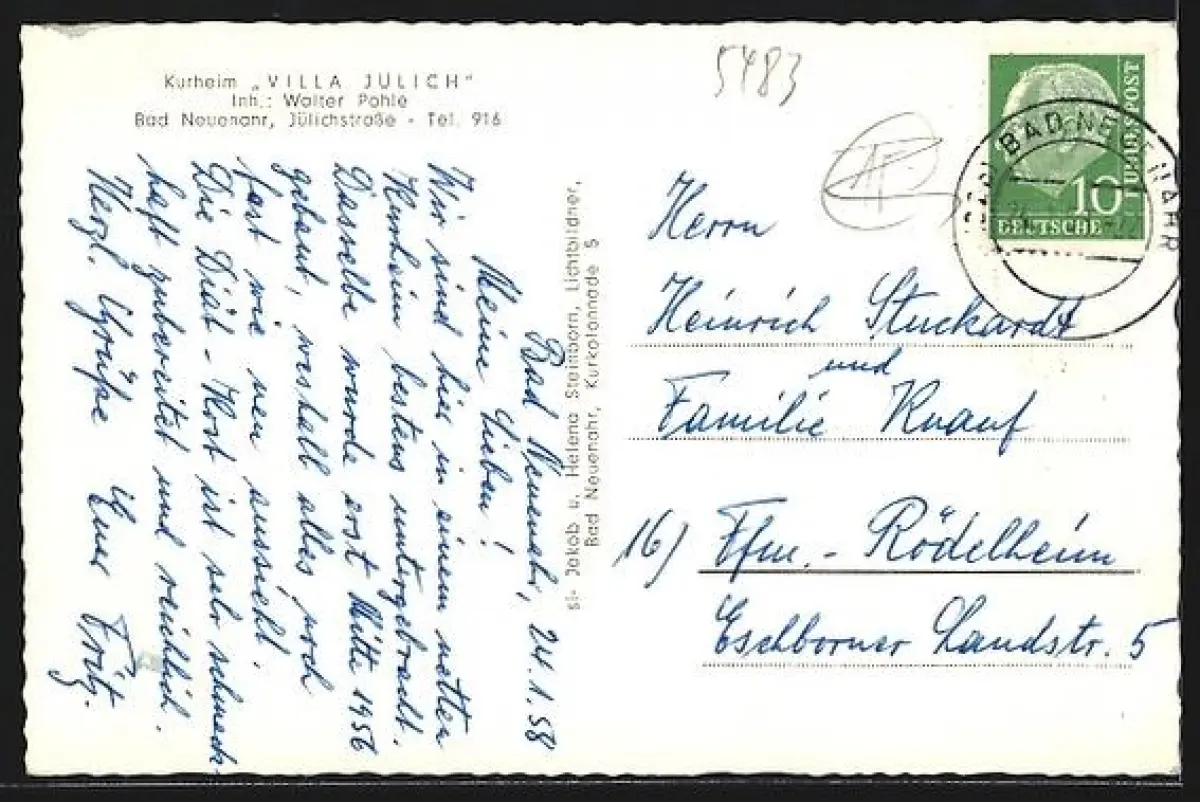 Kurheim „VILLA JÜLICH"
Inh.: Walter Pohle
Bad Neuenahr, Jülichstraße - Tel. 916
Bad Neuenahr, 24.1.58
Meine Lieben!
Wir sind hier in einem netten
Kurheim bestens untergebracht.
Dasselbe wurde erst Mitte 1956
gebaut, weshalb alles noch
fast wie neu aussieht.
Die Diät-Kost ist sehr schmack-
haft zubereitet und reichlich.
Herzl. Grüße Euer Fritz.
Jakob u. Helena Steinborn, Lichtbildner,
Bad Neuenahr, Kurkolonnade 5
5483
DEUTSCHE
BUNDESPOST
10
BAD NEUENAHR
Herrn
Heinrich Stuckardt
und
Familie Knauf
16) Ffm.- Rödelheim
Eschborner Landstr. 5